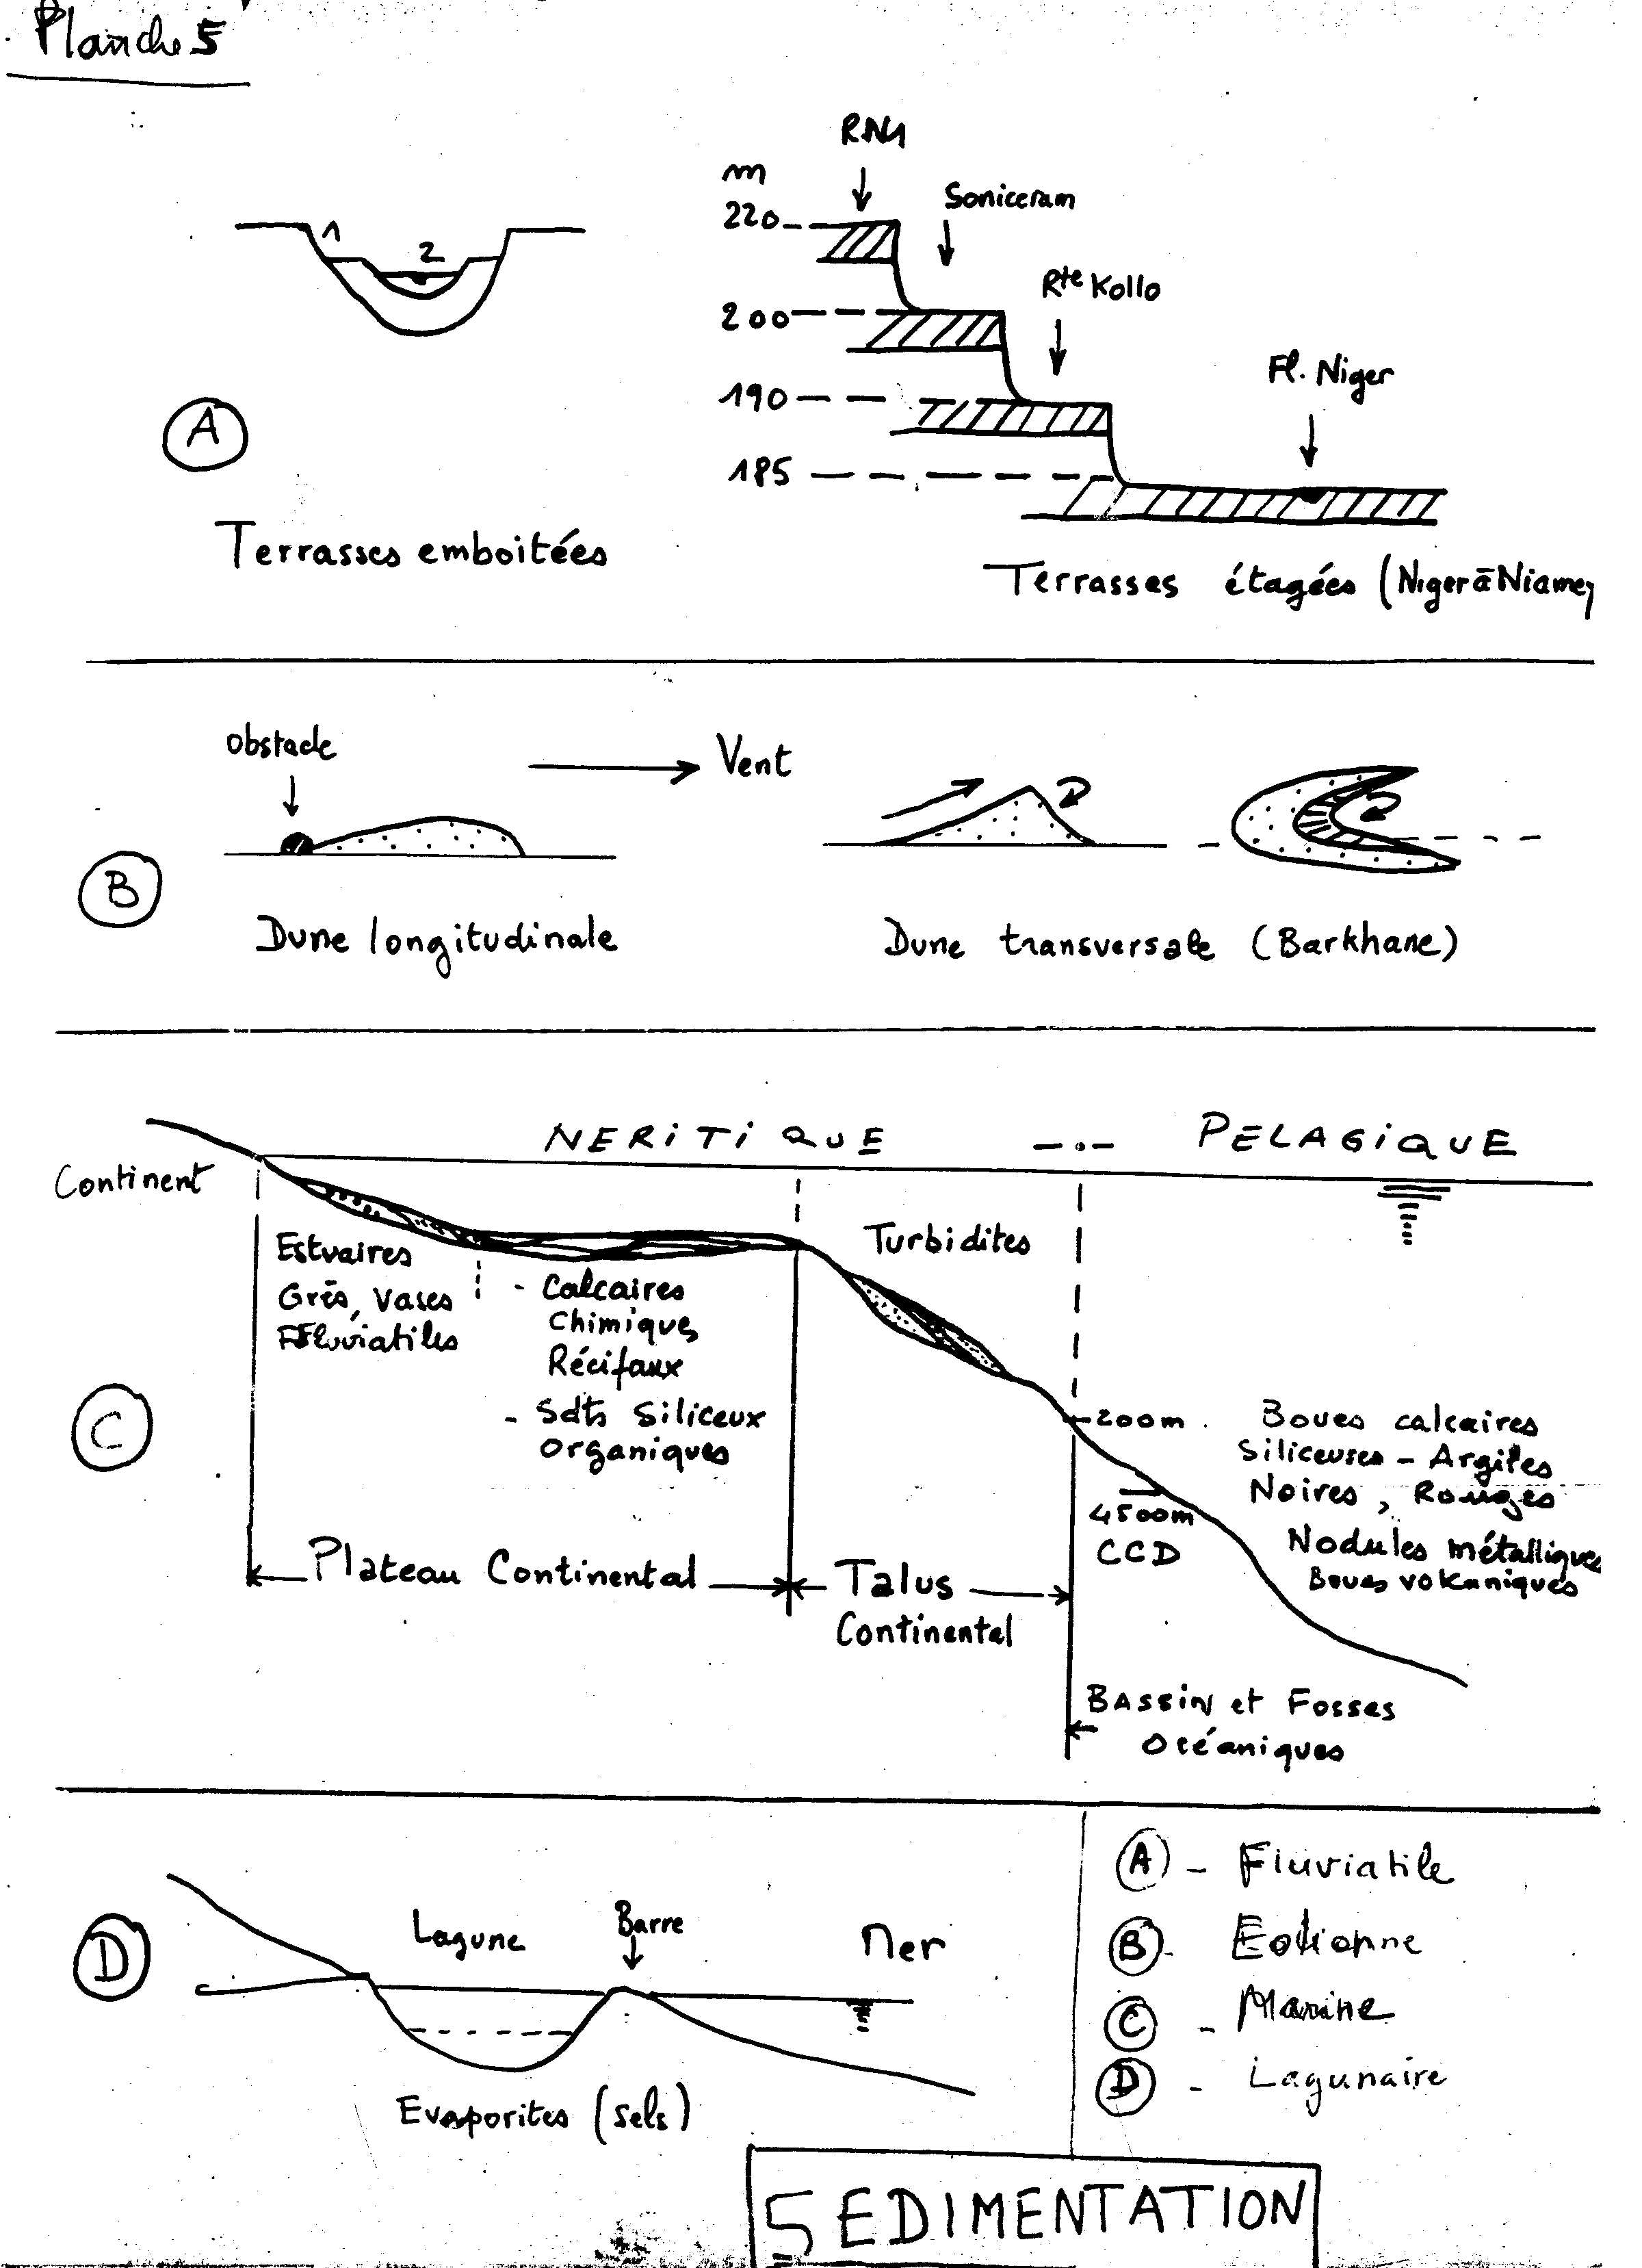 Planche 5
RN1
m
220
Soniceram
1
2
Rte Kollo
200
Fl. Niger
190
A
185
Terrasses emboitées
Terrasses étagées (Niger à Niamey
Obstacle
Vent
B
Dune longitudinale
Dune transversale (Barkhane)
NERITIQUE -.- PELAGIQUE
Continent
Estuaires
Grès, Vases
Fluviatiles
- Calcaires
Chimiques
Récifaux
- Sdts Siliceux
Organiques
Turbidites
C
200m
4500m
CCD
Boues calcaires
Siliceuses - Argiles
Noires, Rouges
Nodules métalliques
Boues volcaniques
Plateau Continental
Talus
Continental
Bassin et Fosses
Océaniques
D
Lagune
Barre
Mer
Evaporites (sels)
A - Fluviatile
B - Eolienne
C - Marine
D - Lagunaire
SEDIMENTATION